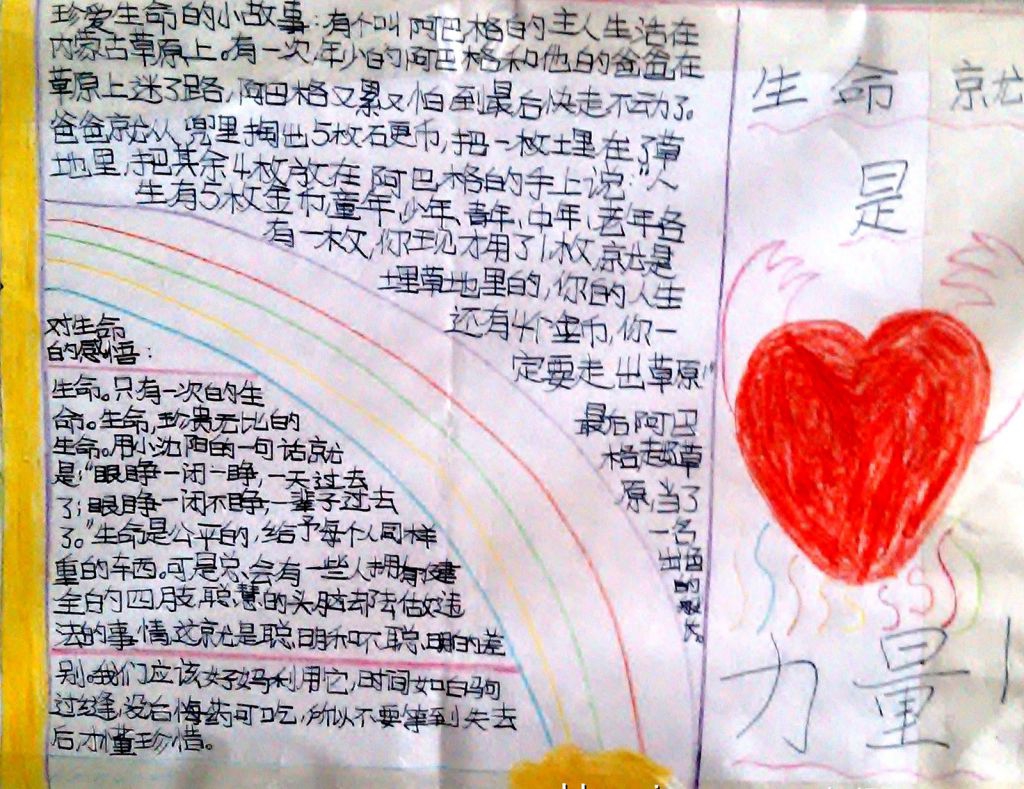 珍爱生命的小故事:有个叫阿巴格的主人生活在
内蒙古草原上。有一次,年少的阿巴格和他的爸爸在
草原上迷了路,阿巴格又累又怕到最后快走不动了。
爸爸就从兜里掏出5枚硬币,把一枚埋在了草
地里,把其余4枚放在阿巴格的手上说:"人
生有5枚金币,童年、少年、青年、中年、老年各
有一枚,你现才用了1枚,就是
埋草地里的,你的人生
还有4个金币,你一
定要走出草原"
最后阿巴
格走出草
原,当了
一名
出色
的
船
长。
对生命
的感悟:
生命。只有一次的生
命。生命,珍贵无比的
生命。用小沈阳的一句话就
是:"眼睁一闭一睁,一天过去
了;眼睁一闭不睁,一辈子过去
了。"生命是公平的,给予每个人同样
重的东西。可是总会有一些人拥有健
全的四肢,聪慧的头脑却去做违
法的事情这就是聪明和不聪明的差
别。我们应该好好利用它,时间如白驹
过缝,没后悔药可吃,所以不要等到失去
后,才懂珍惜。
生命就
是
力量